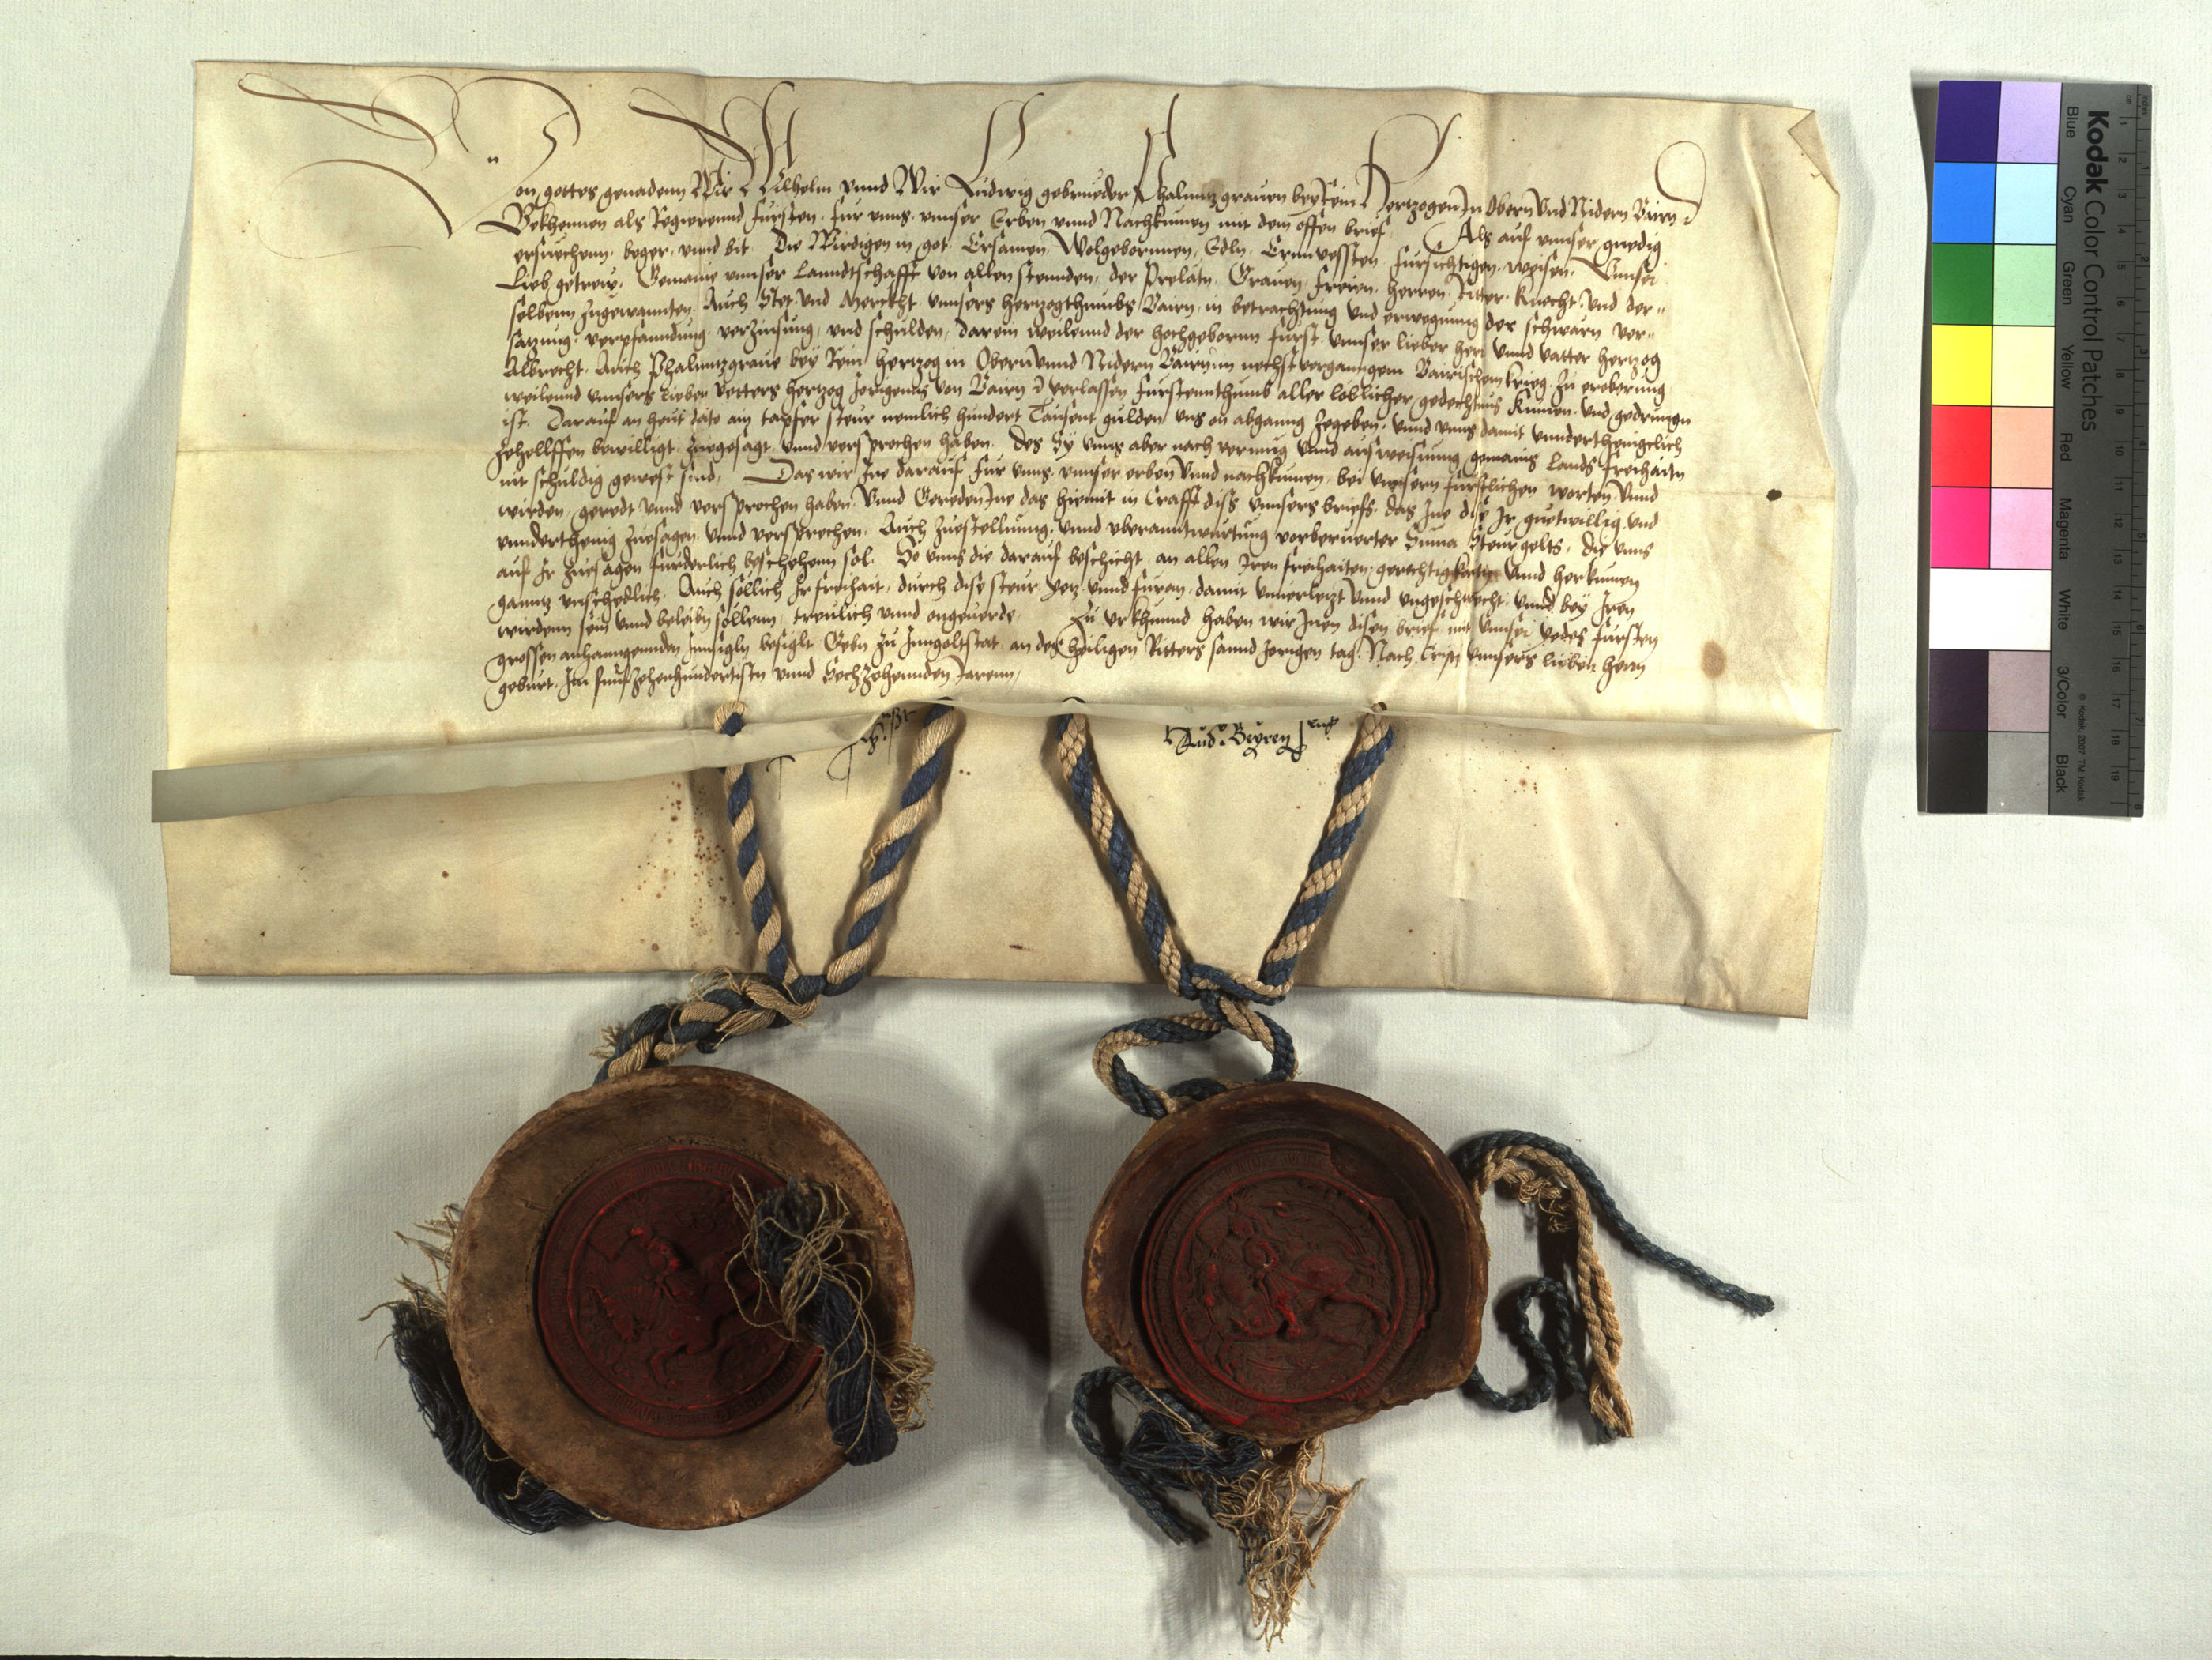 Von gottes genadenn Wir Wilhelm vnnd Wir Ludwig gebrueder Phalnntzgrauen bey Rein Hertzogen In Obern Vnd Nidern Bairn ꝛc
Bekhennen als Regierennd fursten. fur vnns. vnnser Erben vnnd Nachkumen mit dem offen brief Als auf vnnser gnedig
ersuechenn. beger. vnnd bit. Die Wirdigen in got. Ersamen. Wolgebornnen, Edln. Ernnvessten. fursichtigen. weisen. Vnnser
Lieb getrew. Gemaine vnnser Lanndtschafft von allen stennden, der Prelatn. Grauen, freien. Herren. Ritter. Knecht. Vnd der-
selbenn Zugewannten. Auch Stet. Vnd Merckht. vnnsers hertzogthumbs Bairn, in betrachtung vnd erwegung der schwarn ver-
satzung. verpfanndung. verzinsung, vnd schulden, darein weilennd der hochgeborn furst. vnnser lieber herr vnnd vatter hertzog
Albrecht. Auch Phalnntzgraue bey Rein hertzog in Obern vnnd Nidern Bairn ꝛc in nechstverganngem Bairischem krieg. Zu eroberung
weilennd vnnsers Lieben Vetters hertzog Jorigenns von Bairn ꝛc verlassen furstennthumb aller loblicher gedechtnus kumen. Vnd gedrungen
ist. Darauf an heut dato ain tapfer steur nemlich hundert Tausent gulden vns on abganng Zegeben. vnnd vnns damit vnnderthenigclich
Zehellffen bewilligt. Zuegesagt. vnnd versprochen haben. Des Sy vnns aber nach vermug vnnd ausweisung gemains Lannds freihaitn
nit schuldig gewest sind, Das wir Ine darauf fur vnns. vnnser erben Vnnd nachkumen, bei vnnsern furstlichen worten Vnnd
wirden, geredt vnnd versprochen haben. Vnnd Gereden Ine das hiemit in Crafft diss vnnsers briefs. das Ine dise Ir guetwillig. vnd
vnnderthenig Zuesagen. vnnd versprechen. Auch Zuestellnung. vnnd vberanntwurtung vorberuerter Suma Steurgelts, die vnns
auf Ir Zuesagen furderlich beschehenn sol. So vnns die darauf beschicht. an allen Iren freihaiten, gerechtigkaiten Vnnd herkumen
ganntz vnschedlich. Auch sollich Ir freihait, durch dise steur yetz vnnd furan, damit vnuerletzt Vnnd vngeschwecht. Vnnd bey Iren
wirdenn sein vnnd beleiben sollenn, treulich vnnd ongeuerde Zu vrkhunnd haben wir Inen disen brief mit vnnser yedes fursten
grossen anhanngennden Innsigln besiglt Gebn zu Inngolstat an des heiligen Ritters sannd Jorigen tag. Nach Cristi vnnsers lieben herrn
geburt. Im funfzehenhundertistn vnnd Sechzehennden Jarenn,
Lud. Beyren
Kodak Color Control Patches
Blue Cyan Green Yellow Red Magenta White 3/Color Black
© Kodak, 2007 TM: Kodak
cm 1 2 3 4 5 6 7 8 9 10 11 12 13 14 15 16 17 18 19
inches 1 2 3 4 5 6 7 8